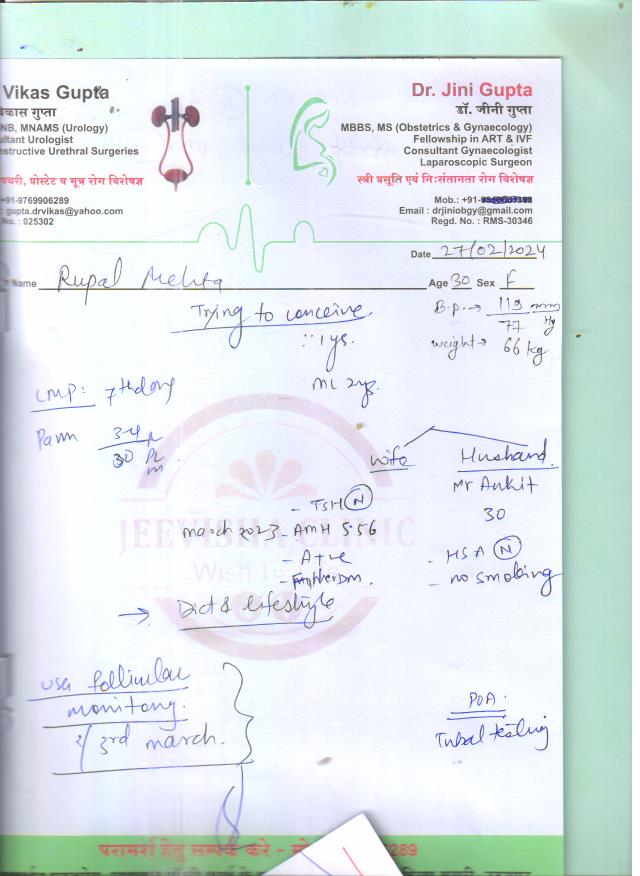 Vikas Gupta
विकास गुप्ता
NB, MNAMS (Urology)
ultant Urologist
structive Urethral Surgeries
पथरी, प्रोस्टेट व मूत्र रोग विशेषज्ञ
+91-9769906289
: gupta.drvikas@yahoo.com
No. : 025302
Dr. Jini Gupta
डॉ. जीनी गुप्ता
MBBS, MS (Obstetrics & Gynaecology)
Fellowship in ART & IVF
Consultant Gynaecologist
Laparoscopic Surgeon
स्त्री प्रसूति एवं निःसंतानता रोग विशेषज्ञ
Mob.: +91-
Email : drjiniobgy@gmail.com
Regd. No. : RMS-30346
Date 27/02/2024
Name Rupal Mehta Age 30 Sex F
B.P. → 119/77 mm Hg
weight → 66 kg
Trying to conceive
1 ys.
ML 2ys.
LMP: 7th day
3-4
30
wife
Husband
Mr Ankit
30
- TSH (N)
March 2023 - AMH 5.56
- A+ve
- HSA (N)
- no smoking
→ Diet & lifestyle
USG follicular
monitoring.
3rd march.
POA.
Tubal testing
JEEVISHA CLINIC
Wish to
परामर्श हेतु सम्पर्क करे - मो 289